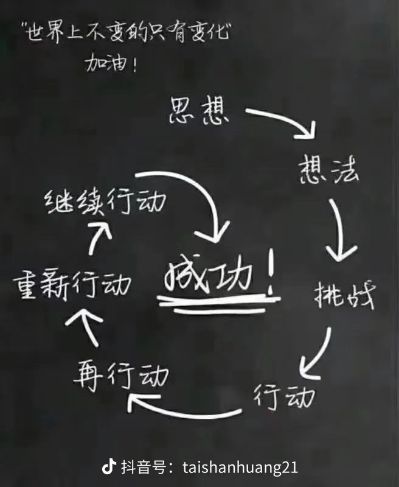 "世界上不变的只有变化"
加油！
思想
想法
挑战
行动
再行动
重新行动
继续行动
成功！
抖音号：taishanhuang21